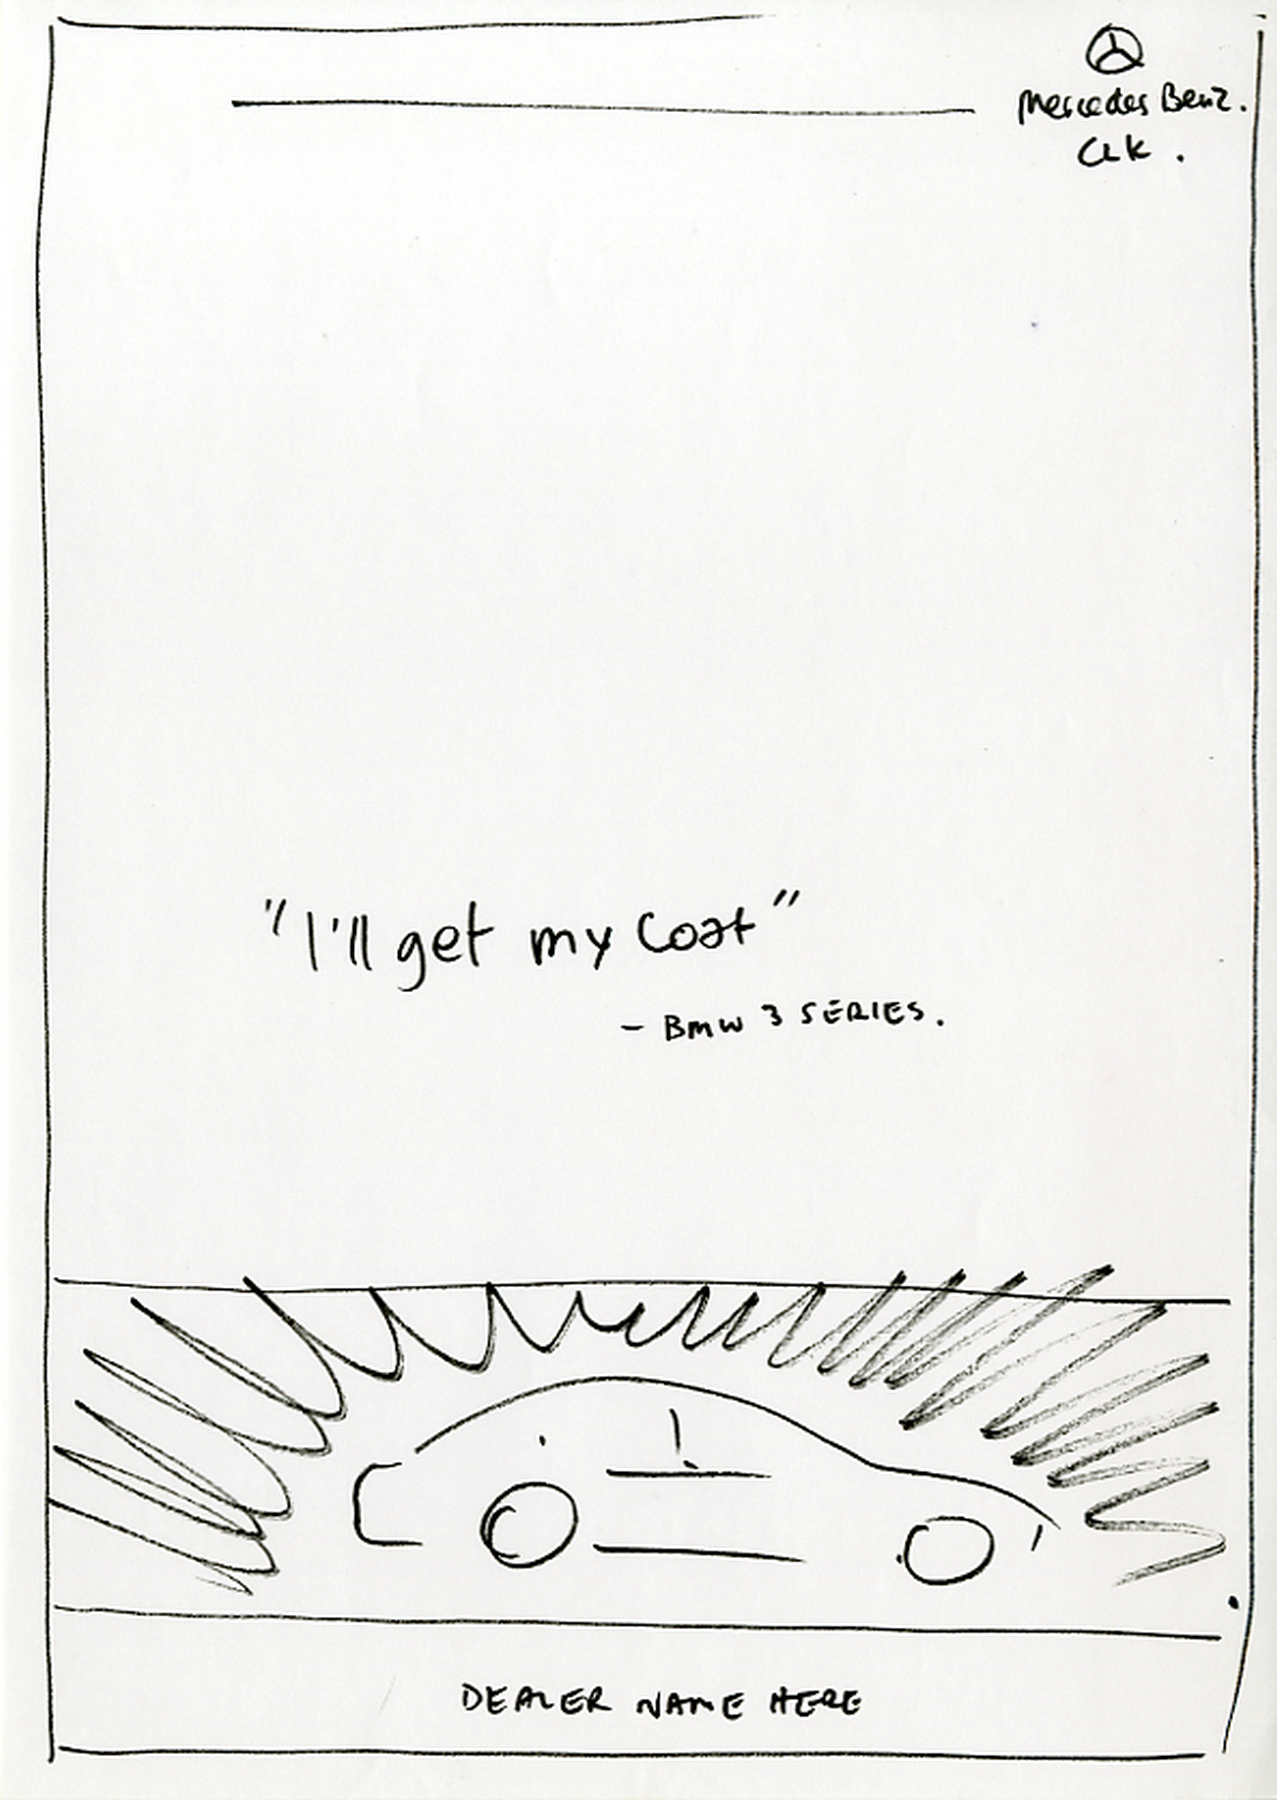 Mercedes Benz.
CLK.
"I'll get my coat"
- BMW 3 SERIES.
DEALER NAME HERE